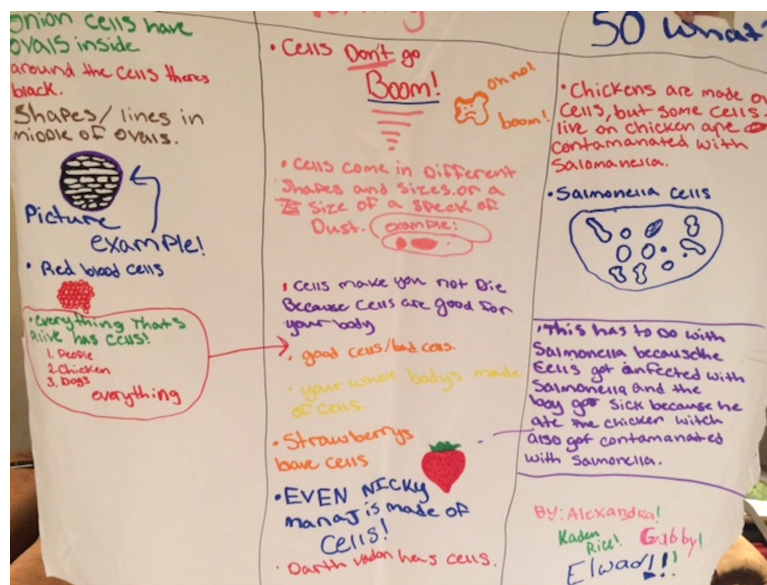 onion cells have
ovals inside
around the cells theres
black.
Shapes/lines in
middle of ovals.
Picture
example!
• Red blood cells
• everything that's
alive has cells!
1. People
2. Chicken
3. Dogs
everything
• Cells Don't go
Boom!
oh no!
boom!
• Cells come in different
shapes and sizes. or a
size of a speck of
Dust. example:
• Cells make you not Die
Because cells are good for
your body
• good cells/bad cells.
• your whole bodys made
of cells.
• Strawberrys
have cells
• EVEN NICKY
manaj is made of
cells!
• Darth vadar has cells.
SO what?
• Chickens are made of
cells, but some cells
live on chicken are
contamanated with
Salomanella.
• Salmonella cells
• This has to do with
Salmonella because the
cells got infected with
Salmonella and the
boy got sick because he
ate the chicken witch
also got contamanated
with Salmonella.
BY: Alexandra!
Kaden
Rice!
Gabby!
Elwad!!!